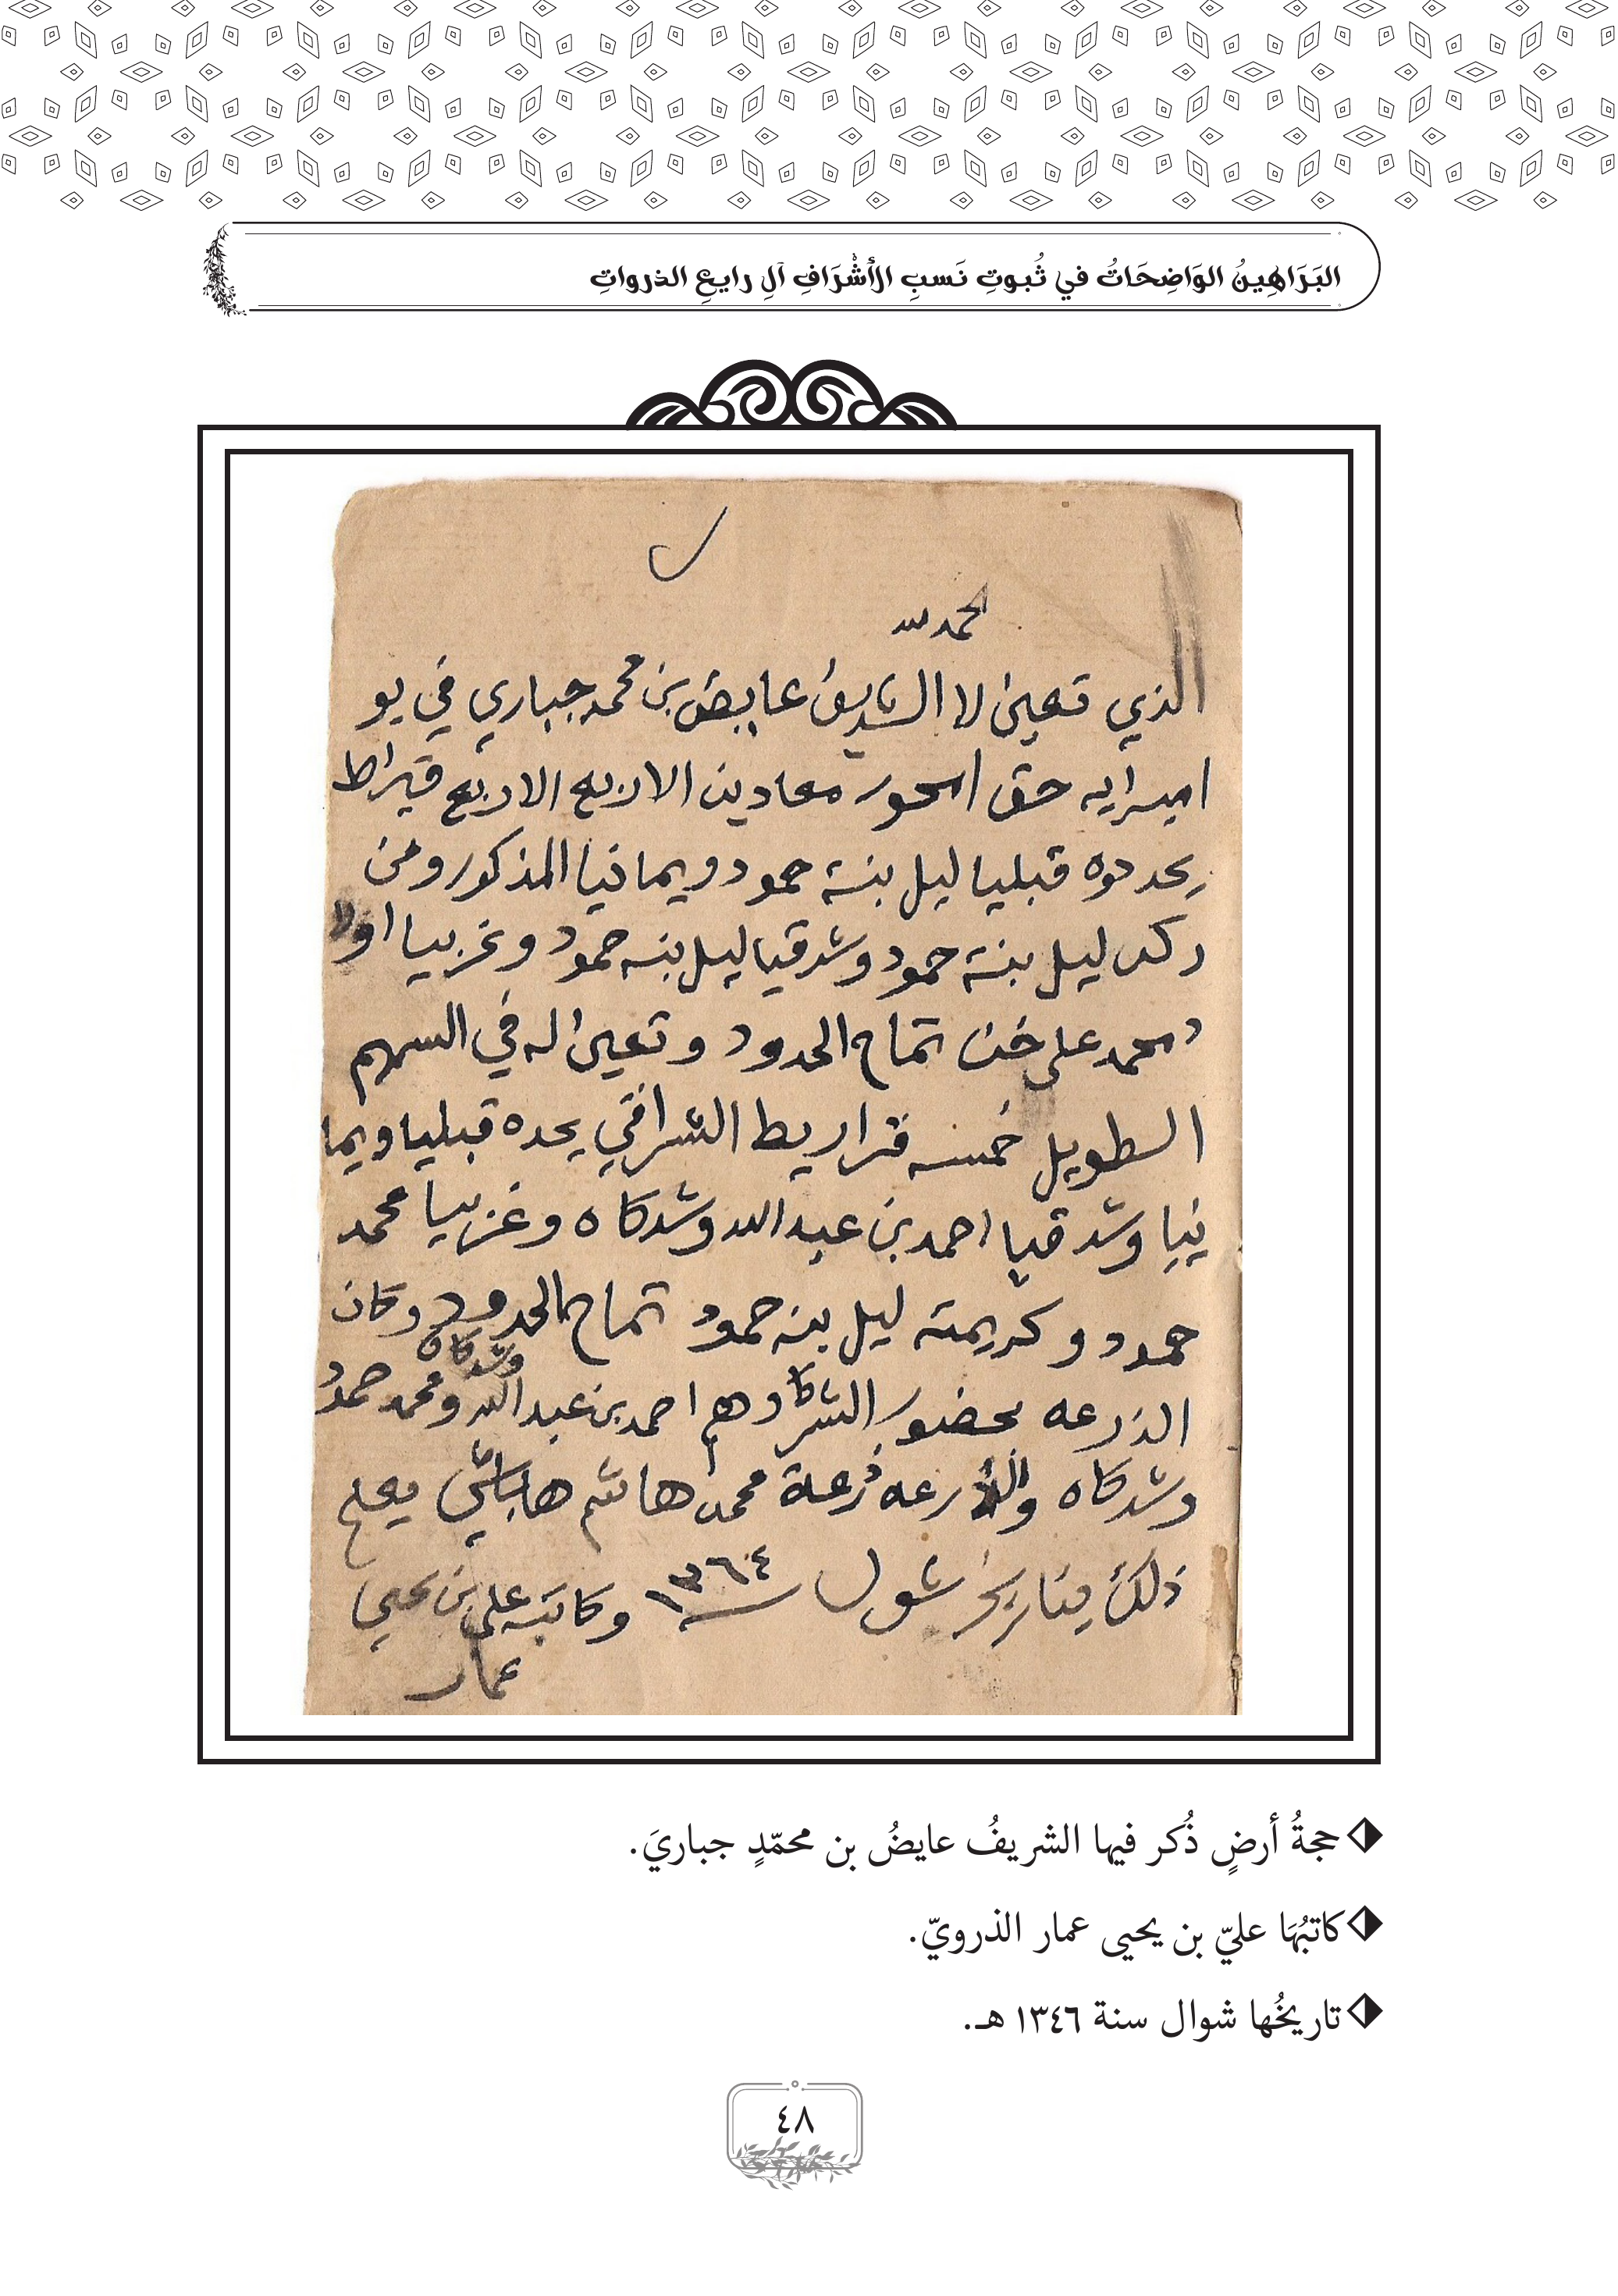 البَرَاهِينُ الوَاضِحَاتُ في ثُبوتِ نَسبِ الأَشْرَافِ آلِ رايعِ الذرواتِ
الحمد لله
الذي تعين لا الشريف عايض بن محمد جباري في يو
حق معادين الاربع الاربع قيراط
يحددوه قبليا ليل بنت حمود ويمانيا المذكور ومن
ليل بنت حمود وشرقيا ليل بنه حمود وغربيا اولا
د محمد علي تمام الحدود وتعين له في السهم
الطويل خمسه قراريط الشرافي يحده قبليا ويما
نيا وشرقيا احمد بن عبدالله وشركاه وغربيا محمد
حمود وكريمته ليل بنه حمود تمام الحدود وكان
الذرعه بحضور الشركا وهم احمد بن عبدالله وشركاه ومحمد حمود
وشركاه والذرعه ذرعة محمد هاشم يعلم
ذلك بتاريخ شول ١٣٦٤ وكاتبه علي بن يحيى
عمار
حجةُ أرضٍ ذُكر فيها الشريفُ عايضُ بن محمّدٍ جباريَ.
كاتبُهَا عليّ بن يحيى عمار الذرويّ.
تاريخُها شوال سنة ١٣٤٦ هـ.
٤٨